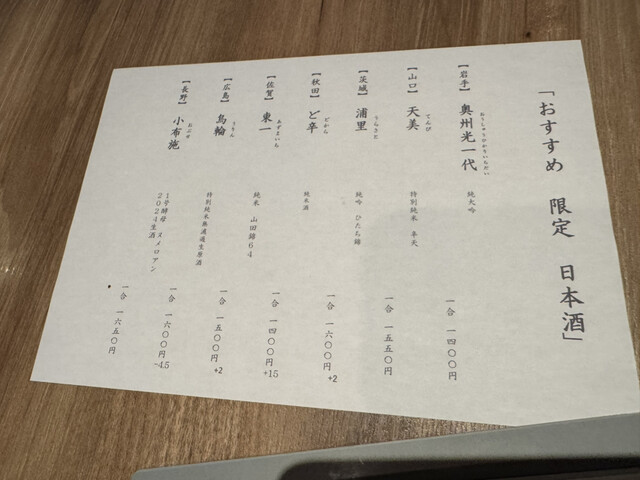 「おすすめ　限定　日本酒」
【岩手】奥州光一代　純大吟　一合　一四〇〇円
おうしゅうひかりいちだい
【山口】天美　特別純米　辛天　一合　一五五〇円
てんび
【茨城】浦里　純吟　ひたち錦　一合　一六〇〇円 +2
うらざと
【秋田】ど辛　純米酒　一合　一四〇〇円 +15
どから
【佐賀】東一　純米　山田錦６４　一合　一五〇〇円 +2
あずまいち
【広島】烏輪　特別純米無濾過生原酒　一合　一六〇〇円 -4.5
うりん
【長野】小布施　１号酵母　ヌメロアン
おぶせ
２０２４生酒　一合　一六五〇円